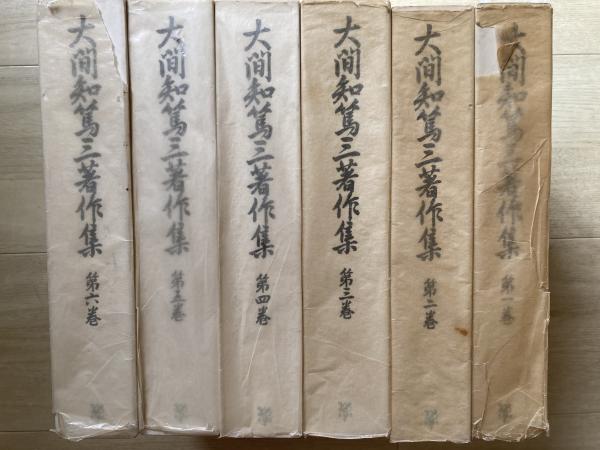 大間知篤三著作集 第一巻
大間知篤三著作集 第二巻
大間知篤三著作集 第三巻
大間知篤三著作集 第四巻
大間知篤三著作集 第五巻
大間知篤三著作集 第六巻